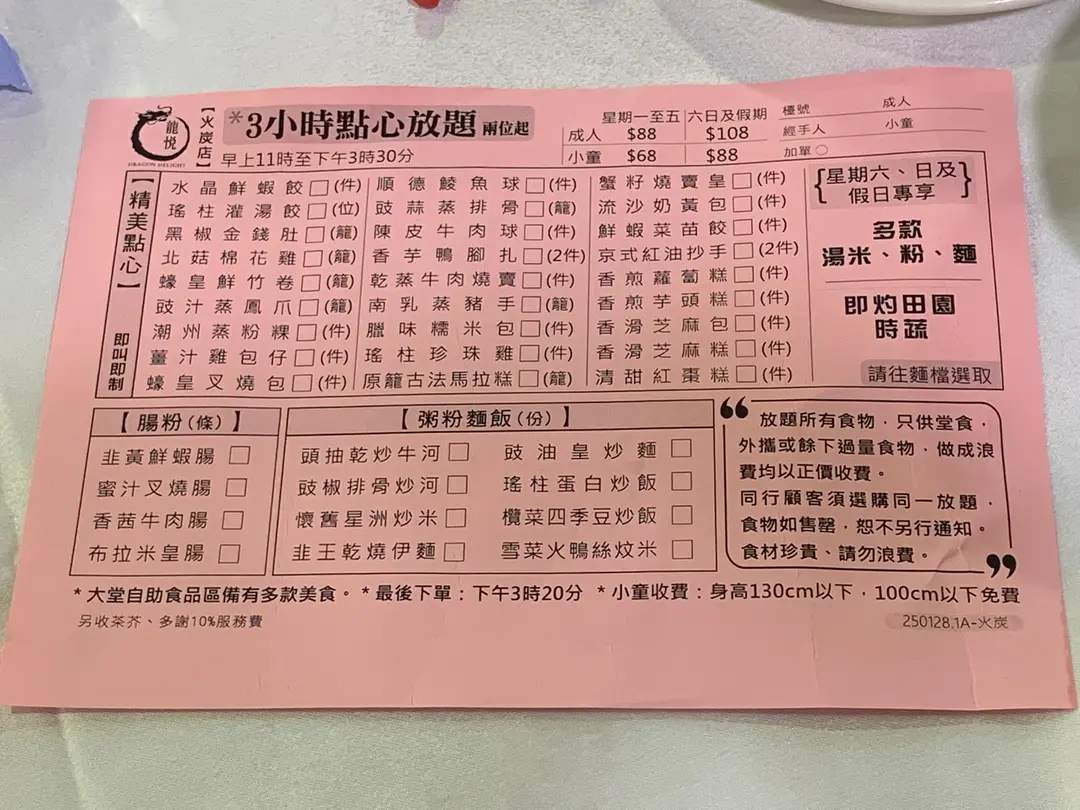 龍悅
DRAGON DELIGHT
【火炭店】
*3小時點心放題 兩位起
早上11時至下午3時30分
星期一至五 六日及假期
成人 $88 $108
小童 $68 $88
檯號 成人
經手人 小童
加單○
【精美點心】
即叫即制
水晶鮮蝦餃□(件) 順德鯪魚球□(件) 蟹籽燒賣皇□(件)
瑤柱灌湯餃□(位) 豉蒜蒸排骨□(籠) 流沙奶黃包□(件)
黑椒金錢肚□(籠) 陳皮牛肉球□(件) 鮮蝦菜苗餃□(件)
北菇棉花雞□(籠) 香芋鴨腳扎□(2件) 京式紅油抄手□(2件)
蠔皇鮮竹卷□(籠) 乾蒸牛肉燒賣□(件) 香煎蘿蔔糕□(件)
豉汁蒸鳳爪□(籠) 南乳蒸豬手□(籠) 香煎芋頭糕□(件)
潮州蒸粉粿□(件) 臘味糯米包□(件) 香滑芝麻包□(件)
薑汁雞包仔□(件) 瑤柱珍珠雞□(件) 香滑芝麻糕□(件)
蠔皇叉燒包□(件) 原籠古法馬拉糕□(籠) 清甜紅棗糕□(件)
{星期六、日及
假日專享}
多款
湯米、粉、麵
即灼田園
時蔬
請往麵檔選取
【腸粉(條)】
韭黃鮮蝦腸□
蜜汁叉燒腸□
香茜牛肉腸□
布拉米皇腸□
【粥粉麵飯(份)】
頭抽乾炒牛河□ 豉油皇炒麵□
豉椒排骨炒河□ 瑤柱蛋白炒飯□
懷舊星洲炒米□ 欖菜四季豆炒飯□
韭王乾燒伊麵□ 雪菜火鴨絲炆米□
❝放題所有食物，只供堂食，
外攜或餘下過量食物，做成浪
費均以正價收費。
同行顧客須選購同一放題，
食物如售罄，恕不另行通知。
食材珍貴、請勿浪費。❞
*大堂自助食品區備有多款美食。*最後下單：下午3時20分 *小童收費：身高130cm以下，100cm以下免費
另收茶芥、多謝10%服務費
250128.1A-火炭